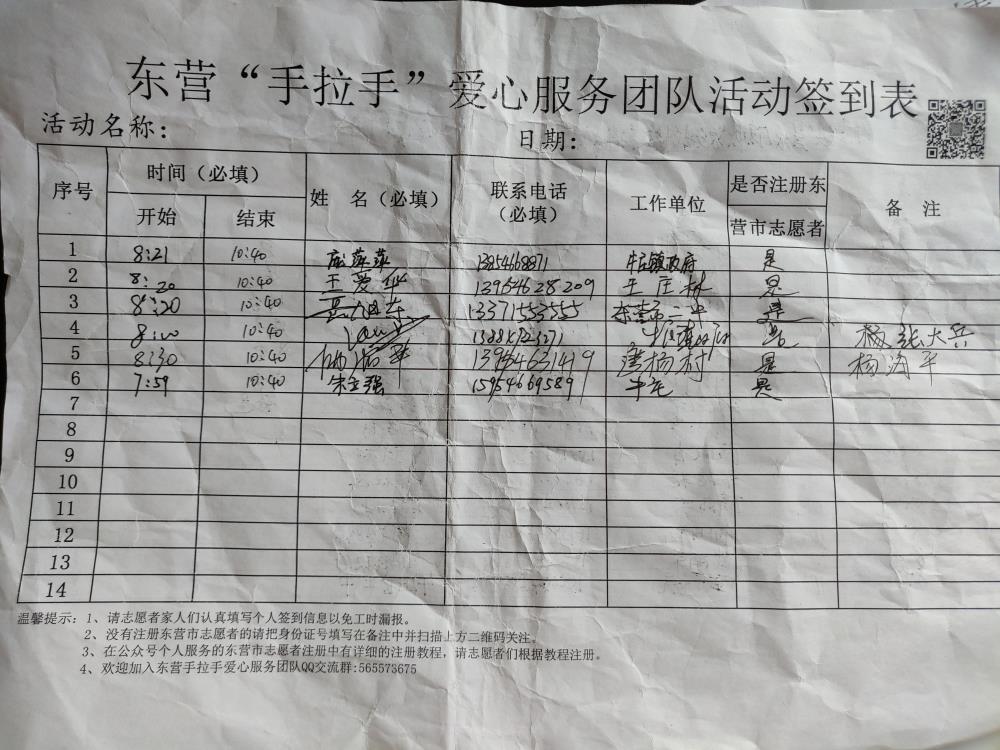 东营“手拉手”爱心服务团队活动签到表
活动名称：
日期：
序号 时间（必填） 姓 名（必填） 联系电话（必填） 工作单位 是否注册东营市志愿者 备 注
开始 结束
1 8:21 10:40 萍萍 牛庄镇政府 是
2 8:20 10:40 王爱华 13954628209 王庄村 是
3 8:20 10:40 13371553555 东营市二中 是
4 8:00 10:40 大兵
5 8:30 10:40 13954631419 杨村 是 杨 平
6 7:59 10:40 朱立强 15954669589 牛庄 是
7
8
9
10
11
12
13
14
温馨提示：1、请志愿者家人们认真填写个人签到信息以免工时漏报。
2、没有注册东营市志愿者的请把身份证号填写在备注中并扫描上方二维码关注。
3、在公众号个人服务的东营市志愿者注册中有详细的注册教程，请志愿者们根据教程注册。
4、欢迎加入东营手拉手爱心服务团队QQ交流群:565573675